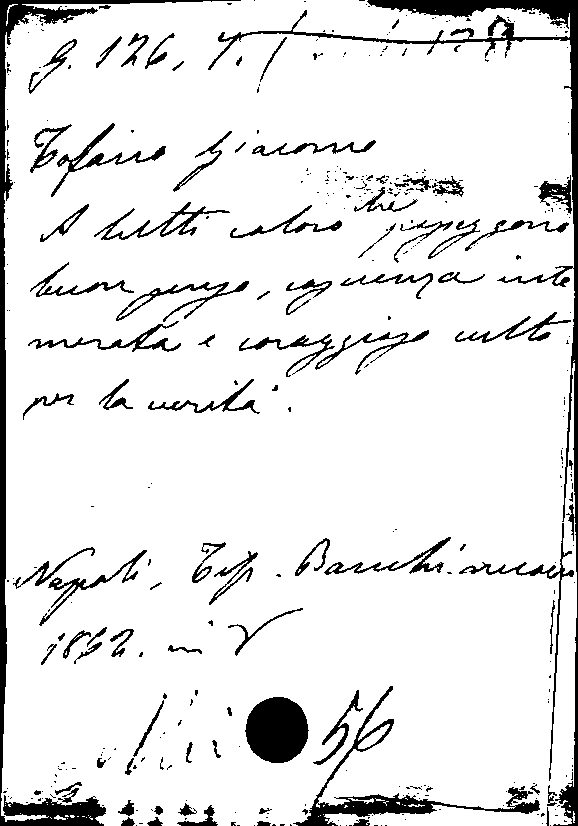 G. 126, 7.
Tofano Giacomo
A tutti coloro che posseggono
buon senso, coscienza inte
merata e coraggioso culto
per la verità.
Napoli, Tip. Banchi nuovi
1862. in 8
56